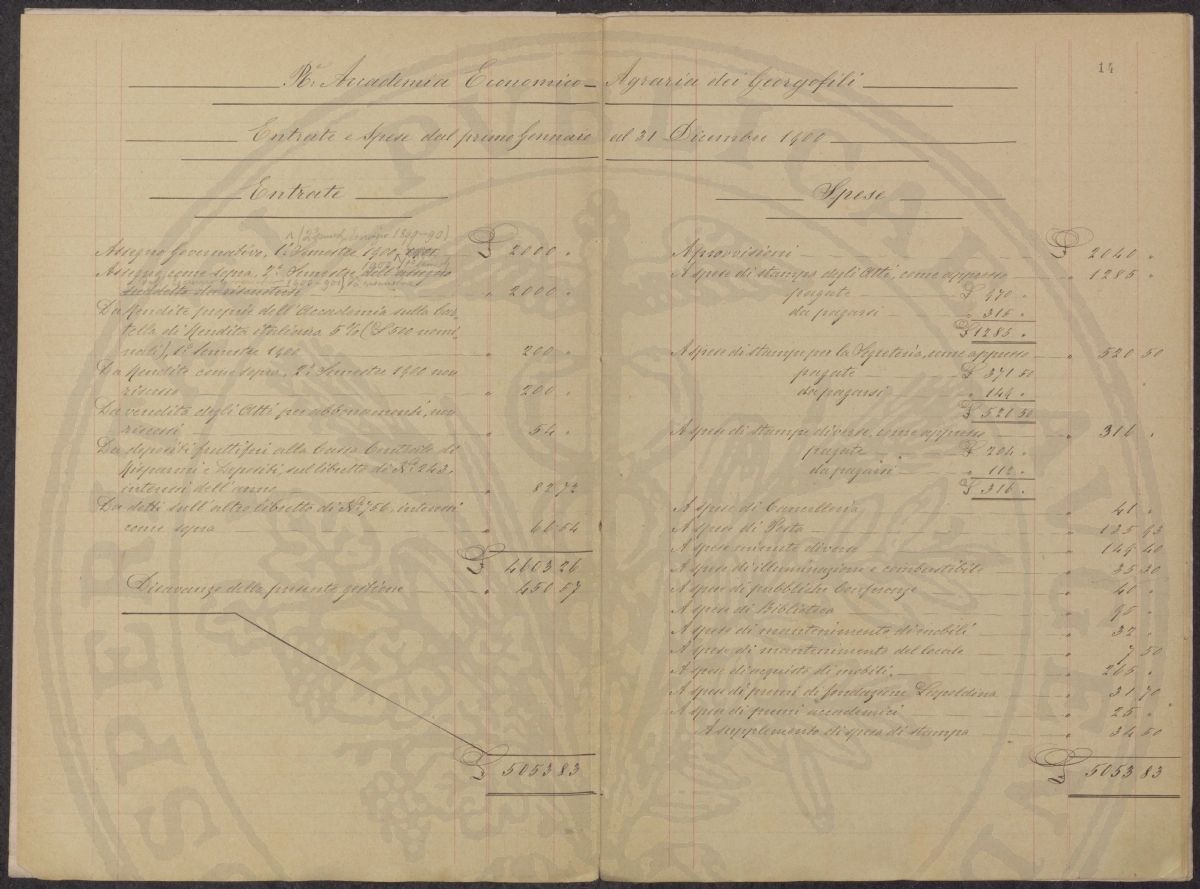 14
R. Accademia Economico-Agraria dei Georgofili
Entrate e Spese dal primo Gennaio al 31 Dicembre 1900
Entrate
Assegno Governativo, 1º Semestre 1900 £ 2000 "
Assegno come sopra, 2º Semestre dell'assegno
suddetto da riscuotersi " 2000 "
Da Rendite proprie dell'Accademia sulla Car-
tella di Rendita italiana 5 % (£ 500 nomi-
nali), 1º Semestre 1900 " 200 "
Da Rendite come sopra, 2º Semestre 1900 non
riscosso " 200 "
Da vendita degli Atti per abbonamenti, non
riscossi " 54 "
Da depositi fruttiferi alla Cassa Centrale di
Risparmi e Depositi sul libretto di Nº 243,
interessi dell'anno " 82 72
Da detti sull'altro libretto di Nº 756, interessi
come sopra " 66 54
£ 4603 26
Disavanzo della presente gestione " 450 57
£ 5053 83
Spese
A provvisioni £ 2040 "
A spese di stampa degli Atti, come appresso " 1285 "
pagate £ 970 "
da pagarsi " 315 "
£ 1285 "
A spese di stampe per la Segreteria, come appresso " 520 50
pagate £ 371 50
da pagarsi " 149 "
£ 520 50
A spese di stampe diverse, come appresso " 316 "
pagate £ 204 "
da pagarsi " 112 "
£ 316 "
A spese di Cancelleria " 41 "
A spese di Posta " 135 93
A spese minute diverse " 149 40
A spese di illuminazione e combustibile " 35 30
A spese di pubbliche Conferenze " 40 "
A spese di Biblioteca " 95 "
A spese di mantenimento di mobili " 32 "
A spese di mantenimento del locale " 7 50
A spese di acquisto di mobili " 265 "
A spese di premi di fondazione Leopoldina " 31 70
A spese di premi accademici " 25 "
A supplemento di spese di stampa " 34 50
£ 5053 83